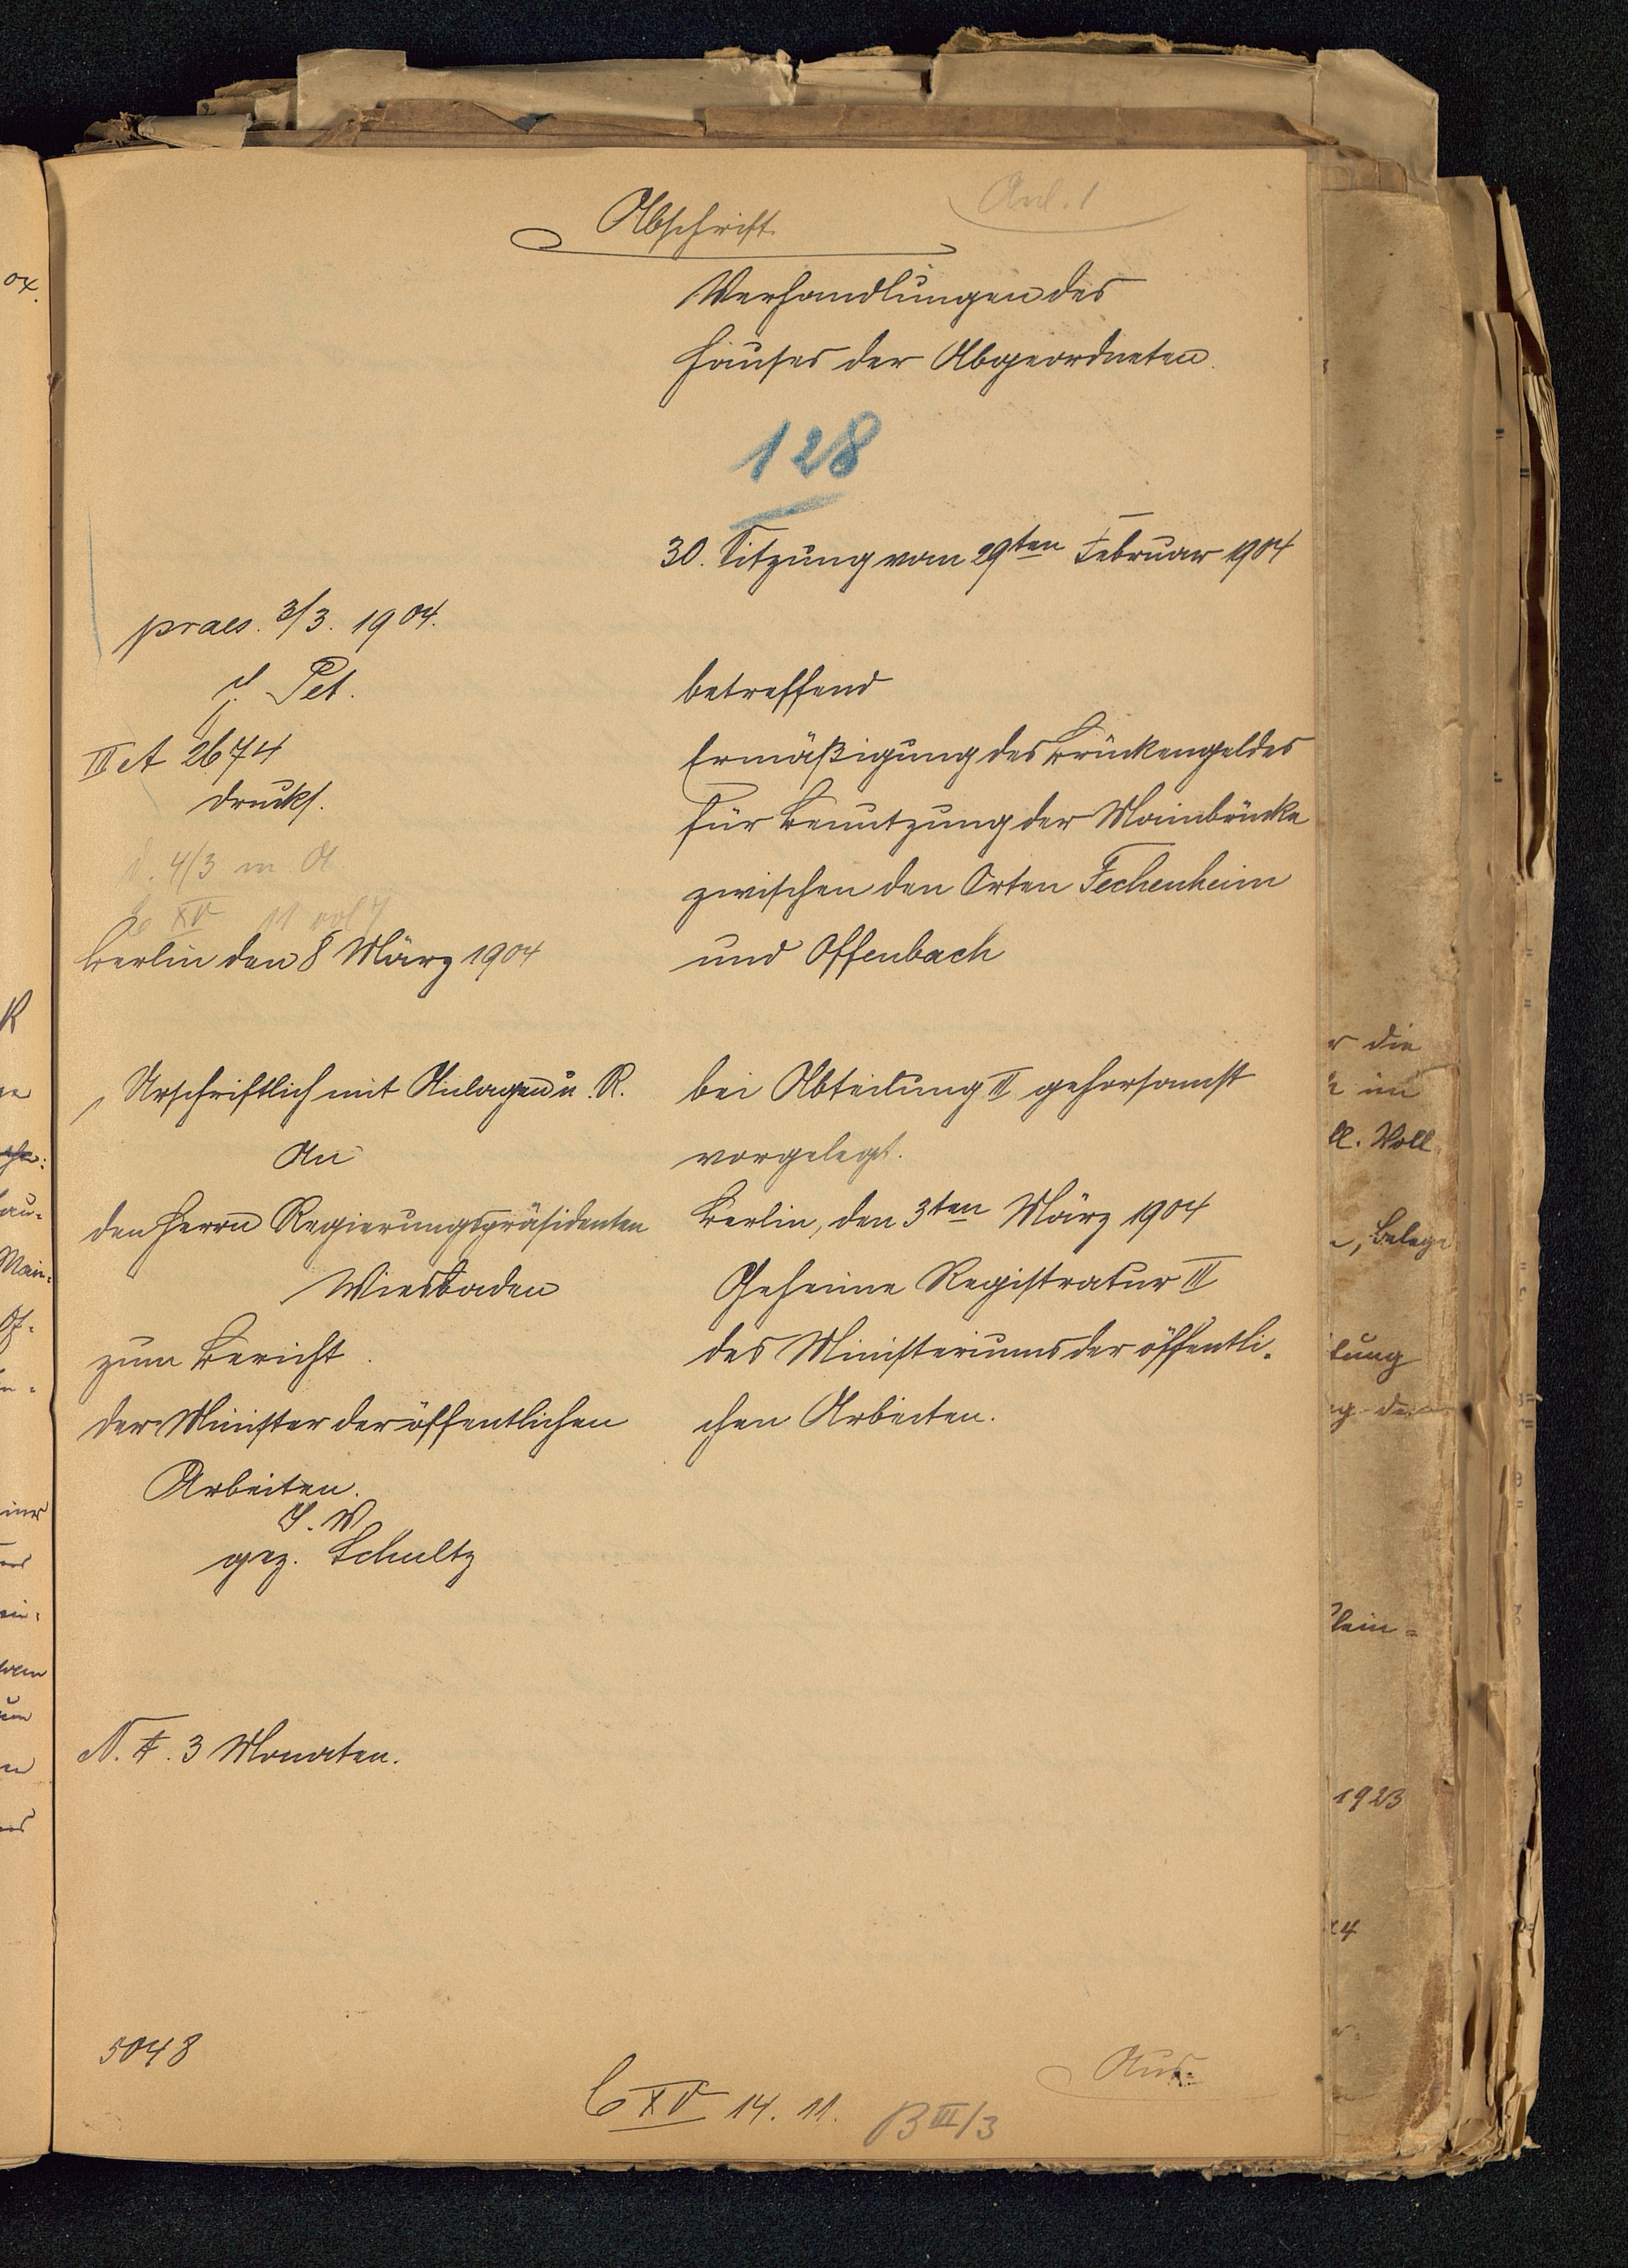 Anl. 1
Abschrift.
Verhandlungen des
Hauses der Abgeordneten.
128
30. Sitzung vom 29ten Februar 1904
praes. 3/3. 1904.
Pet.
III A 2674
drucks.
betreffend
Ermäßigung des Brückengeldes
für Benutzung der Mainbrücke
zwischen den Orten Fechenheim
und Offenbach
4/3
XV 11 vol 7
Berlin den 8 März 1904
Urschriftlich mit Anlagen u. R.
An
den Herrn Regierungspräsidenten
Wiesbaden
zum Bericht.
Der Minister der öffentlichen
Arbeiten.
J. V
gez. Schultz
bei Abteilung II gehorsamst
vorgelegt.
Berlin, den 3ten März 1904
Geheime Registratur III
des Ministeriums der öffentli-
chen Arbeiten.
N. F. 3 Monaten.
5048
C XV 14. 11.
B III/3
Aus-
04.
Main-
r die
ll. Voll
, Belege
tung
1923